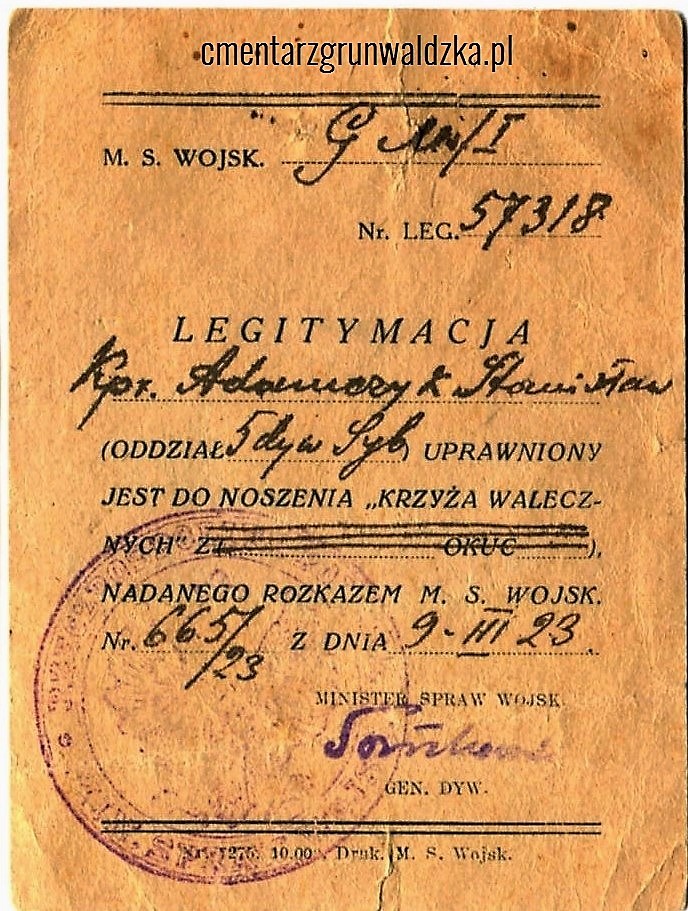 cmentarzgrunwaldzka.pl
M. S. WOJSK. G
Nr. LEG. 57318
LEGITYMACJA
Kpr. Adamczyk Stanisław
(ODDZIAŁ 5 dyw Syb) UPRAWNIONY
JEST DO NOSZENIA „KRZYŻA WALECZ-
NYCH" OKUC ),
NADANEGO ROZKAZEM M. S. WOJSK.
Nr. 665/23 Z DNIA 9-III 23
MINISTER SPRAW WOJSK
GEN. DYW.
Nr. 7275. 10.00 Druk. M. S. Wojsk.